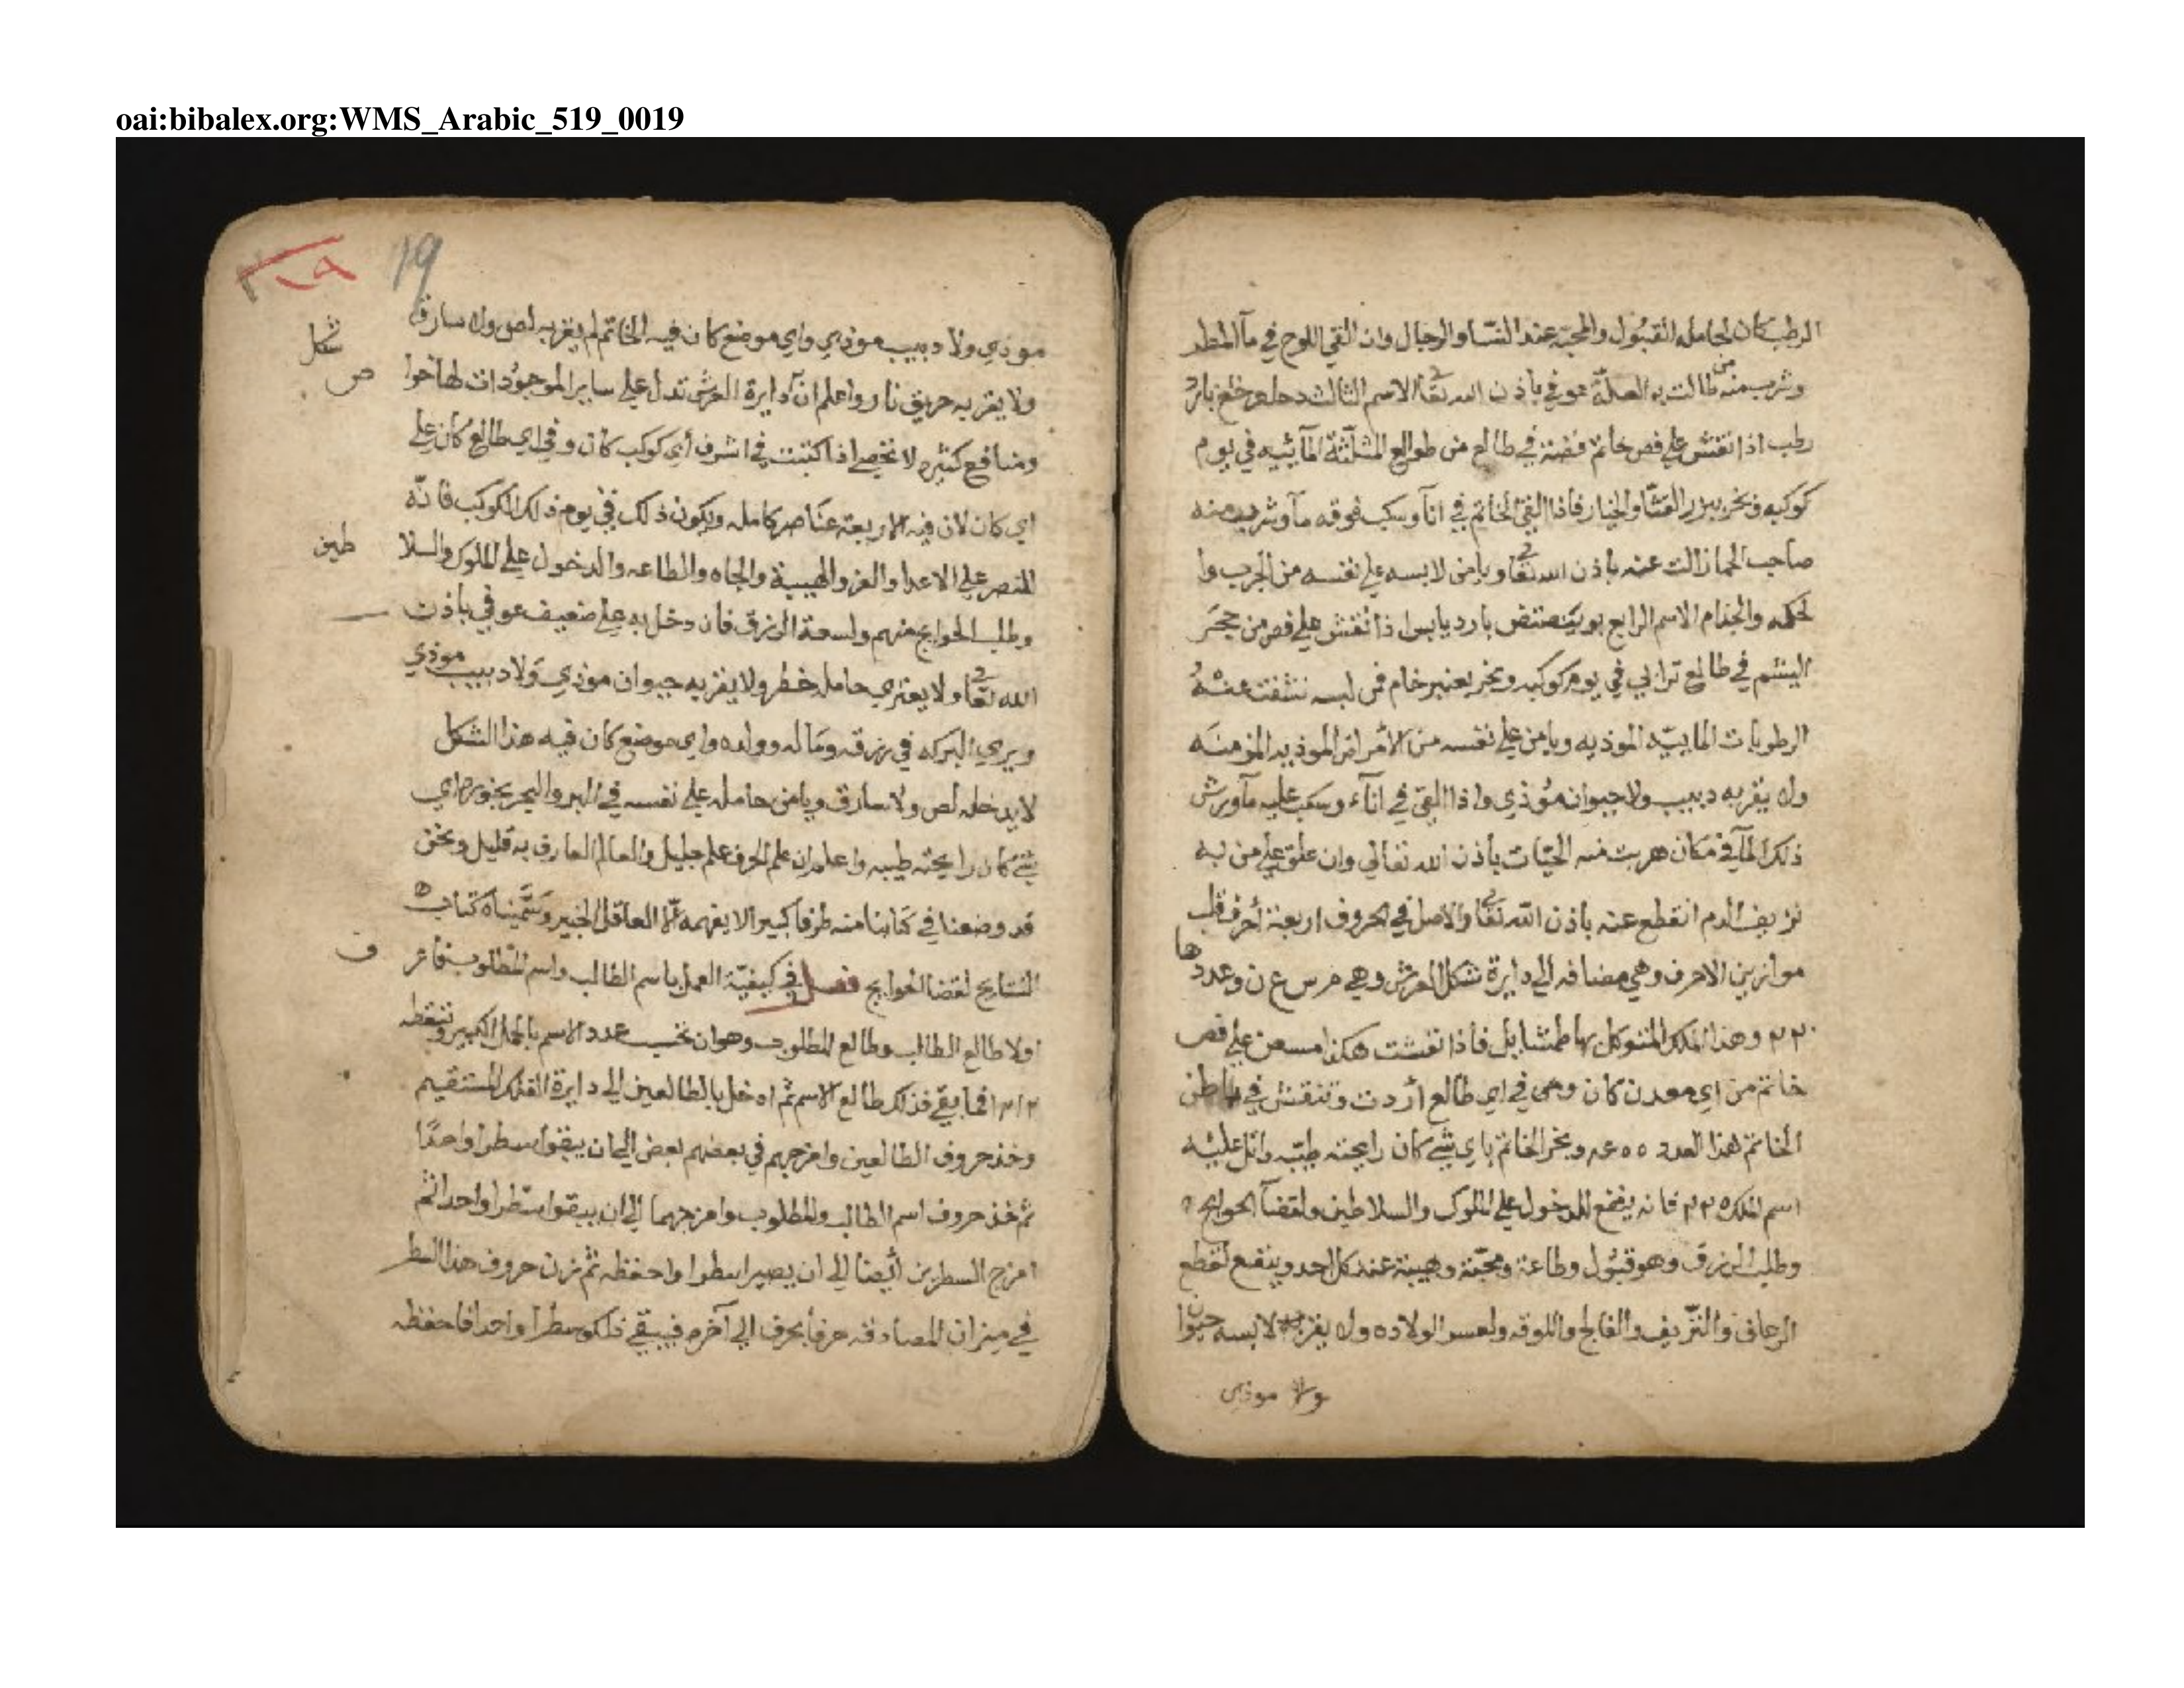 oai:bibalex.org:WMS_Arabic_519_0019
الرطب كان لحامله القبول والمحبه عند النسا والرجال وان القي اللوح في مآ المطر
وشرب منه من طالت به العلة عوفي باذن الله تعا الاسم الثالث بارد
رطب اذا نقش علي فص خاتم فضة في طالع من طوالع المثلثة المآئيه في يوم
كوكبه وبخر ببزر القثا والخيار فاذا القي الخاتم في انآ وسكب فوقه مآ وشرب منه
صاحب الحما زالت عنه باذن الله تعا ويامن لابسه علي نفسه من الجرب وا
لحكه والجذام الاسم الرابع بارد يابس اذا نقش علي فص من حجر
اليشم في طالع ترابي في يوم كوكبه وبخر بعنبر خام فمن لبسه نشفت عنه
الرطوبات المابيّه الموذيه ويامن علي نفسه من الأمراض الموذيه المزمنه
ولا يقربه دبيب ولا حيوان موذي واذا القي في انآء وسكب عليه مآ ورش
ذلك المآ في مكان هربت منه الحيّات باذن الله تعالي وان علق علي من به
نزيف الدم انقطع عنه باذن الله تعا والاصل في الحروف اربعة أحرف قلب
موازين الاحرف وهي مضافه الي دايرة شكل العرش وهي م س ع ن وعددها
٢٢٠ وهذا الملك المتوكل بها طمشايل فاذا نقشت هكذا مسعن علي فص
خاتم من اي معدن كان وهي في اي طالع أردت وتنقش في باطن
الخاتم هذا العدد وبخر الخاتم باي شي كان رايحته طيبه واتل عليه
اسم الملك فانه ينفع للدخول علي الملوك والسلاطين ولقضآ الحوايج
وطلب الرزق وهو قبول وطاعة ومحبّة وهيبة عند كل احد وينفع لقطع
الرعاف والنزيف والفالج واللوقه ولعسر الولاده ولا يقرب لابسه حيوان
ولا موذي
19
موذي ولا دبيب موذي واي موضع كان فيه الخاتم لم يقربه لص ولا سارق
ولا يقربه حريق نار واعلم انّ دايرة العرش تدل علي ساير الموجودات لها خوا
ص
ومنافع كثيره لا تحصي اذا كتبت في اشرف أي كوكب كان وفي اي طالع كان علي
شكل
اي كان لان فيه الاربعة عناصر كامله ويكون ذلك في يوم ذلك الكوكب فانه
للنصر علي الاعدا والعز والهيبة والجاه والطاعه والدخول علي الملوك والسلا
طين
وطلب الحوايج منهم ولسعة الرزق فان دخل به علي ضعيف عوفي باذن
الله تعا ولا يعتري حامله خطر ولا يقربه حيوان موذي ولا دبيب موذي
ويري البركه في رزقه وماله وولده واي موضع كان فيه هذا الشكل
لا يدخله لص ولا سارق ويامن حامله علي نفسه في البر والبحر بخوره اي
شي كان رايحته طيبه واعلم ان علم الحرف علم جليل والعالم العارف به قليل ونحن
قد وضعنا في كتابنا منه طرفا كبيرا لا يفهمه الّا العاقل الخبير وسمّيناه كتاب
النتايج لقضا الحوايج فصل في كيفيّة العمل باسم الطالب واسم المطلوب فاعر
ف
اولا طالع الطالب وطالع المطلوب وهو ان تحسب عدد الاسم بالجمل الكبير وتسقطه
١٢ ١٢ فما بقي فذلك طالع الاسم ثم ادخل بالطالعين الي دايرة الفلك المستقيم
وخذ حروف الطالعين وامزجهم في بعضهم بعض الي ان يبقوا سطرا واحدًا
ثم خذ حروف اسم الطالب والمطلوب وامزجهما الي ان يبقوا سطرا واحدا ثم
امزج السطرين أيضا الي ان يصيرا سطرا واحفظه ثم زن حروف هذا السطر
في ميزان المصادقه حرفا بحرف الي آخره فيبقي ذلك سطرا واحدا فاحفظه